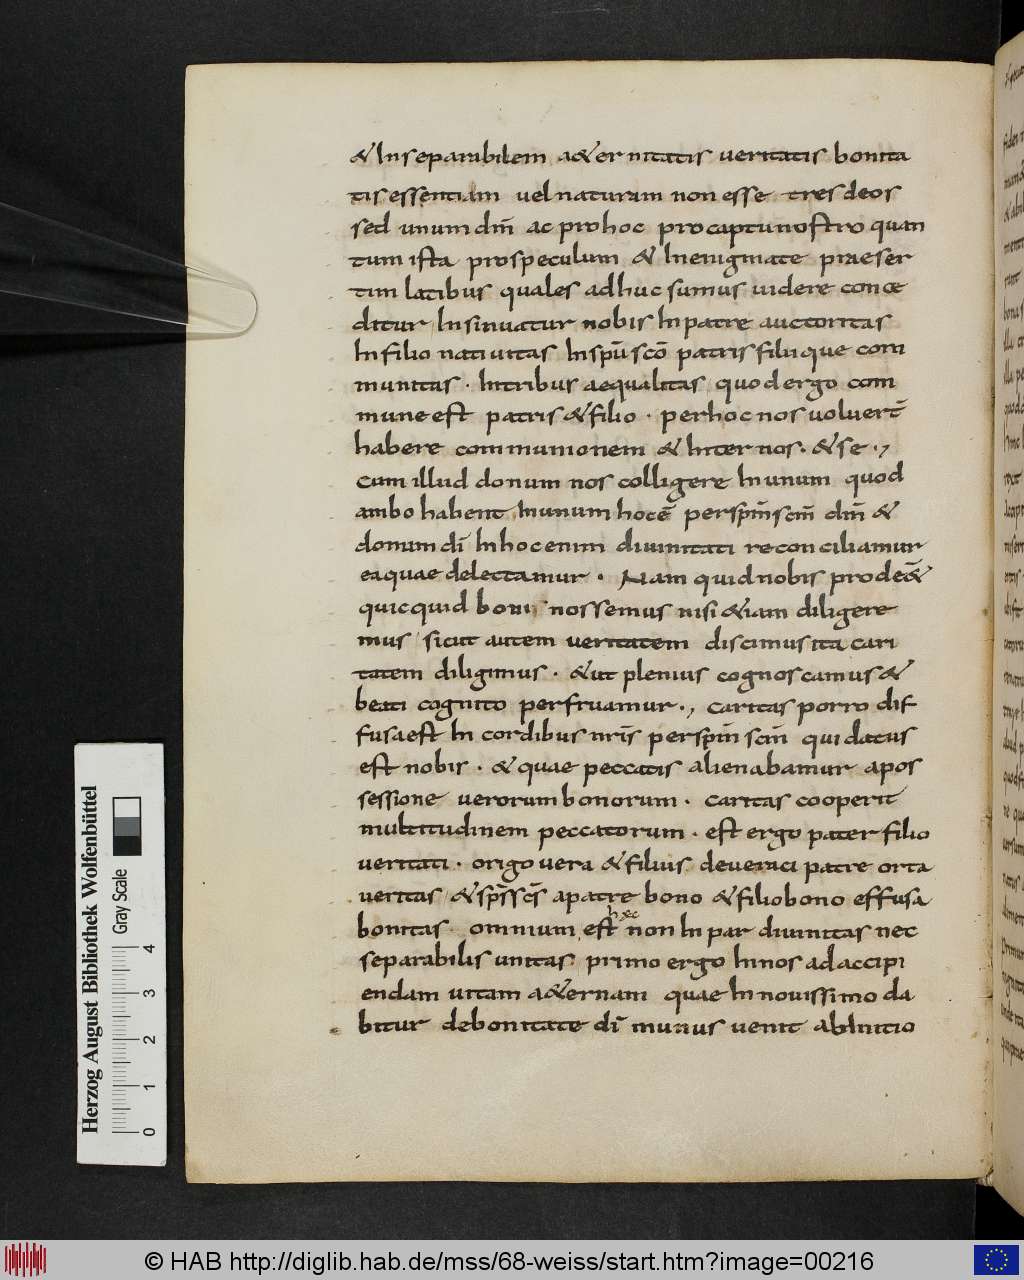 & inseparabilem a&ernitatis ueritatis bonita
tis essentiam uel naturam non esse tres deos
sed unum dm̄ ac pro hoc pro captu nostro quan
tum ista pro speculum & in enigmate praeser
tim latibus quales adhuc sumus uidere conce
ditur insinuatur nobis in patre auctoritas
in filio natiuitas in spū scō patris filiique com
munitas · in tribus aequalitas quod ergo com
mune est patris & filio · per hoc nos uoluer̄
habere communionem & inter nos · & se ·,
cum illud donum nos colligere in unum quod
ambo habent in unum hoc ē per spm̄ scm̄ dm̄ &
donum dī in hoc enim diuinitati reconciliamur
ea quae delectamur · Nam quid nobis prode&̄
quicquid boni nossemus nisi &iam diligere
mus sicut autem ueritatem discimus ita cari
tatem diligimus · & ut plenius cognoscamus &
beati cognito perfruamur ·, caritas porro dif
fusa est in cordibus nr̄is per spm̄ scm̄ qui datus
est nobis · & quae peccatis alienabamur a pos
sessione uerorum bonorum · caritas cooperit
multitudinem peccatorum · est ergo pater filio
ueritati · origo uera & filius de ueraci patre orta
ueritas & sps̄ scs̄ a patre bono & filio bono effusa
bonitas · omnium est hęc non in par diuinitas nec
separabilis unitas primo ergo in nos ad accipi
endam uitam a&ernam quae in nouissimo da
bitur de bonitate dī munus uenit ab initio
Herzog August Bibliothek Wolfenbüttel
Gray Scale
0 1 2 3 4
© HAB http://diglib.hab.de/mss/68-weiss/start.htm?image=00216